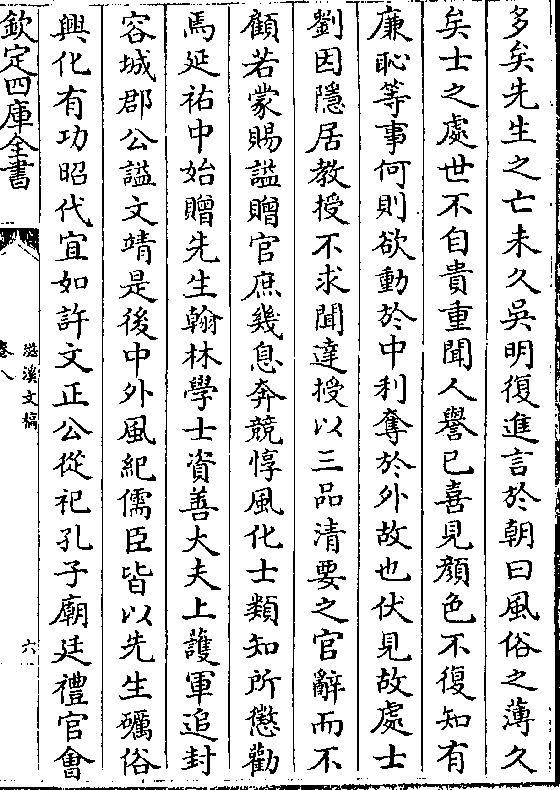 多矣先生之亡未久吳明復進言於朝曰風俗之薄久
矣士之處世不自貴重聞人譽已喜見顏色不復知有
廉恥等事何則欲動於中利奪於外故也伏見故處士
劉因隱居教授不求聞達授以三品清要之官辭而不
顧若蒙賜諡贈官庶幾息奔競惇風化士類知所懲勸
焉延祐中始贈先生翰林學士資善大夫上護軍追封
容城郡公諡文靖是後中外風紀儒臣皆以先生礪俗
興化有功昭代宜如許文正公從祀孔子廟廷禮官會
欽定四庫全書
滋溪文稿
卷八
六